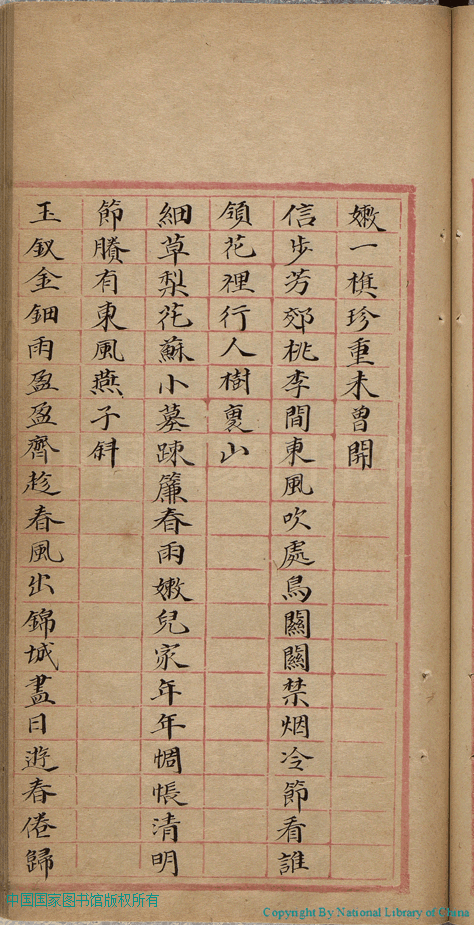 嫩一樵珍重未曾開
信步芳郊桃李間東風吹處鳥關關禁烟冷節看誰
領花裡行人樹裏山
細草梨花蘇小墓踈簾春雨嫩兒家年年惆悵清明
節賸有東風燕子斜
玉釵金鈿兩盈盈齊趁春風出錦城盡日遊春倦歸
中国国家图书馆版权所有
Copyright By National Library of China